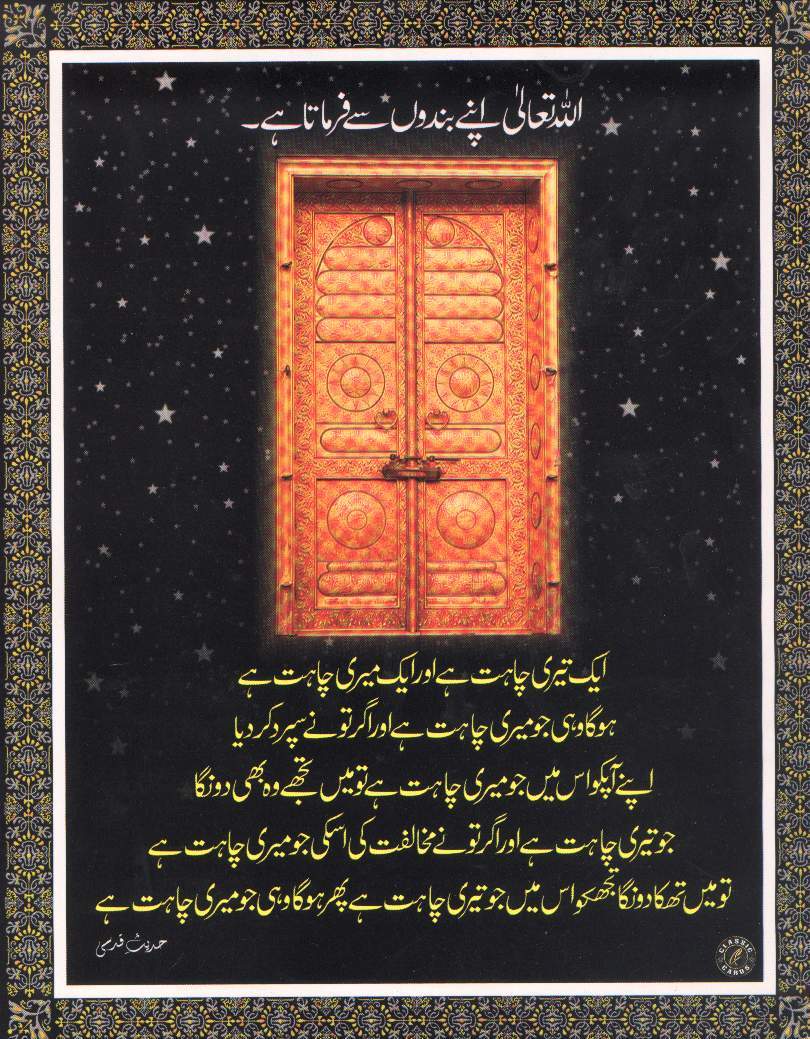 اللہ تعالیٰ اپنے بندوں سے فرماتا ہے۔
ایک تیری چاہت ہے اور ایک میری چاہت ہے
ہوگا وہی جو میری چاہت ہے اور اگر تو نے سپرد کر دیا
اپنے آپکو اس میں جو میری چاہت ہے تو میں تجھے وہ بھی دونگا
جو تیری چاہت ہے اور اگر تو نے مخالفت کی اسکی جو میری چاہت ہے
تو میں تھکا دونگا تجھکو اس میں جو تیری چاہت ہے پھر ہوگا وہی جو میری چاہت ہے
حدیث قدسی
CLASSIC CARDS